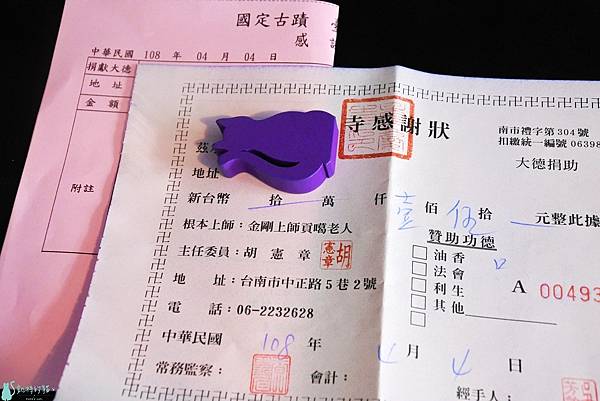 國定古蹟
感
中華民國 108 年 04 月 04 日
捐獻大德
地 址
金 額
附註
寺感謝狀
南市禮字第304號
扣繳統一編號 06398
茲
大德捐助
地址
新台幣 拾 萬 仟 壹 佰 伍 拾 元整此據
根本上師：金剛上師貢噶老人
主任委員：胡 憲 章
胡憲章
地 址：台南市中正路5巷2號
電 話：06-2232628
贊助功德
油香
法會
利生
其他
A 00493
中華民國 108 年 4 月 4 日
常務監察：
會計：
經手人：